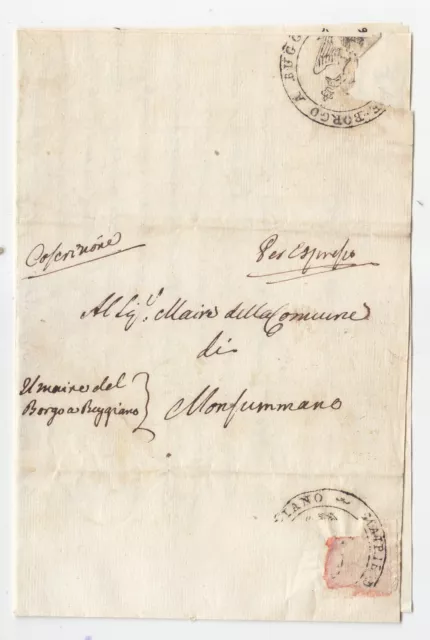 BORGO A BUGG
Coscrizione
Per Espresso
Al Sig.r Maire della Comune
di
Il maire del
Borgo a Buggiano
Monsummano
IANO